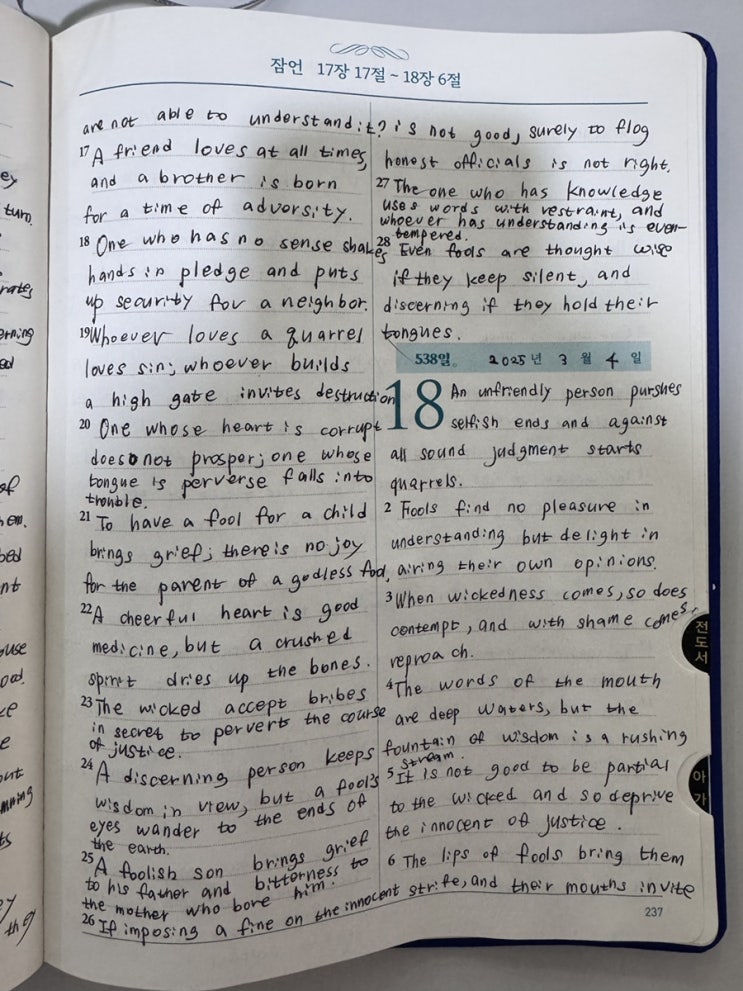 잠언 17장 17절 ~ 18장 6절
are not able to understand it?
17 A friend loves at all times,
and a brother is born
for a time of adversity.
18 One who has no sense shakes
hands in pledge and puts
up security for a neighbor.
19 Whoever loves a quarrel
loves sin; whoever builds
a high gate invites destruction
20 One whose heart is corrupt
does not prosper; one whose
tongue is perverse falls into
trouble.
21 To have a fool for a child
brings grief; there is no joy
for the parent of a godless fool,
22 A cheerful heart is good
medicine, but a crushed
spirit dries up the bones.
23 The wicked accept bribes
in secret to pervert the course
of justice.
24 A discerning person keeps
wisdom in view, but a fool's
eyes wander to the ends of
the earth.
25 A foolish son brings grief
to his father and bitterness to
the mother who bore him.
26 If imposing a fine on the innocent
is not good, surely to flog
honest officials is not right.
27 The one who has knowledge
uses words with restraint, and
whoever has understanding is even-
tempered.
28 Even fools are thought wise
if they keep silent, and
discerning if they hold their
tongues.
538일. 2025년 3월 4일
18 An unfriendly person purshes
selfish ends and against
all sound judgment starts
quarrels.
2 Fools find no pleasure in
understanding but delight in
airing their own opinions.
3 When wickedness comes, so does
contempt, and with shame comes
reproach.
4 The words of the mouth
are deep waters, but the
fountain of wisdom is a rushing
stream.
5 It is not good to be partial
to the wicked and so deprive
the innocent of justice.
6 The lips of fools bring them
strife, and their mouths invite
237
전도서
아가
ey
turn.
erning
of
nt
ts